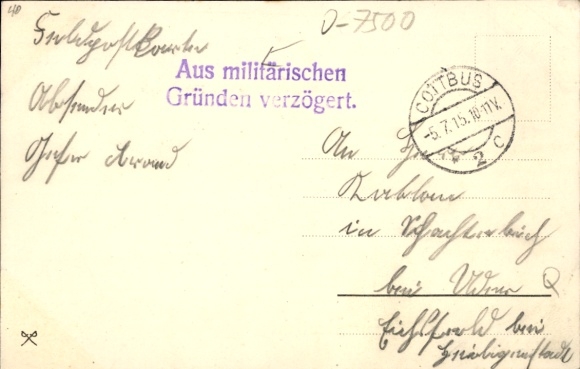 40
D-7500
Feldpostkarte
Aus militärischen
Gründen verzögert.
Absender
Brand
COTTBUS
-5.7.15.10-11V.
2 C
An
Kablom
in Schachtebich
bei Uder
Eichsfeld bei
Heiligenstadt